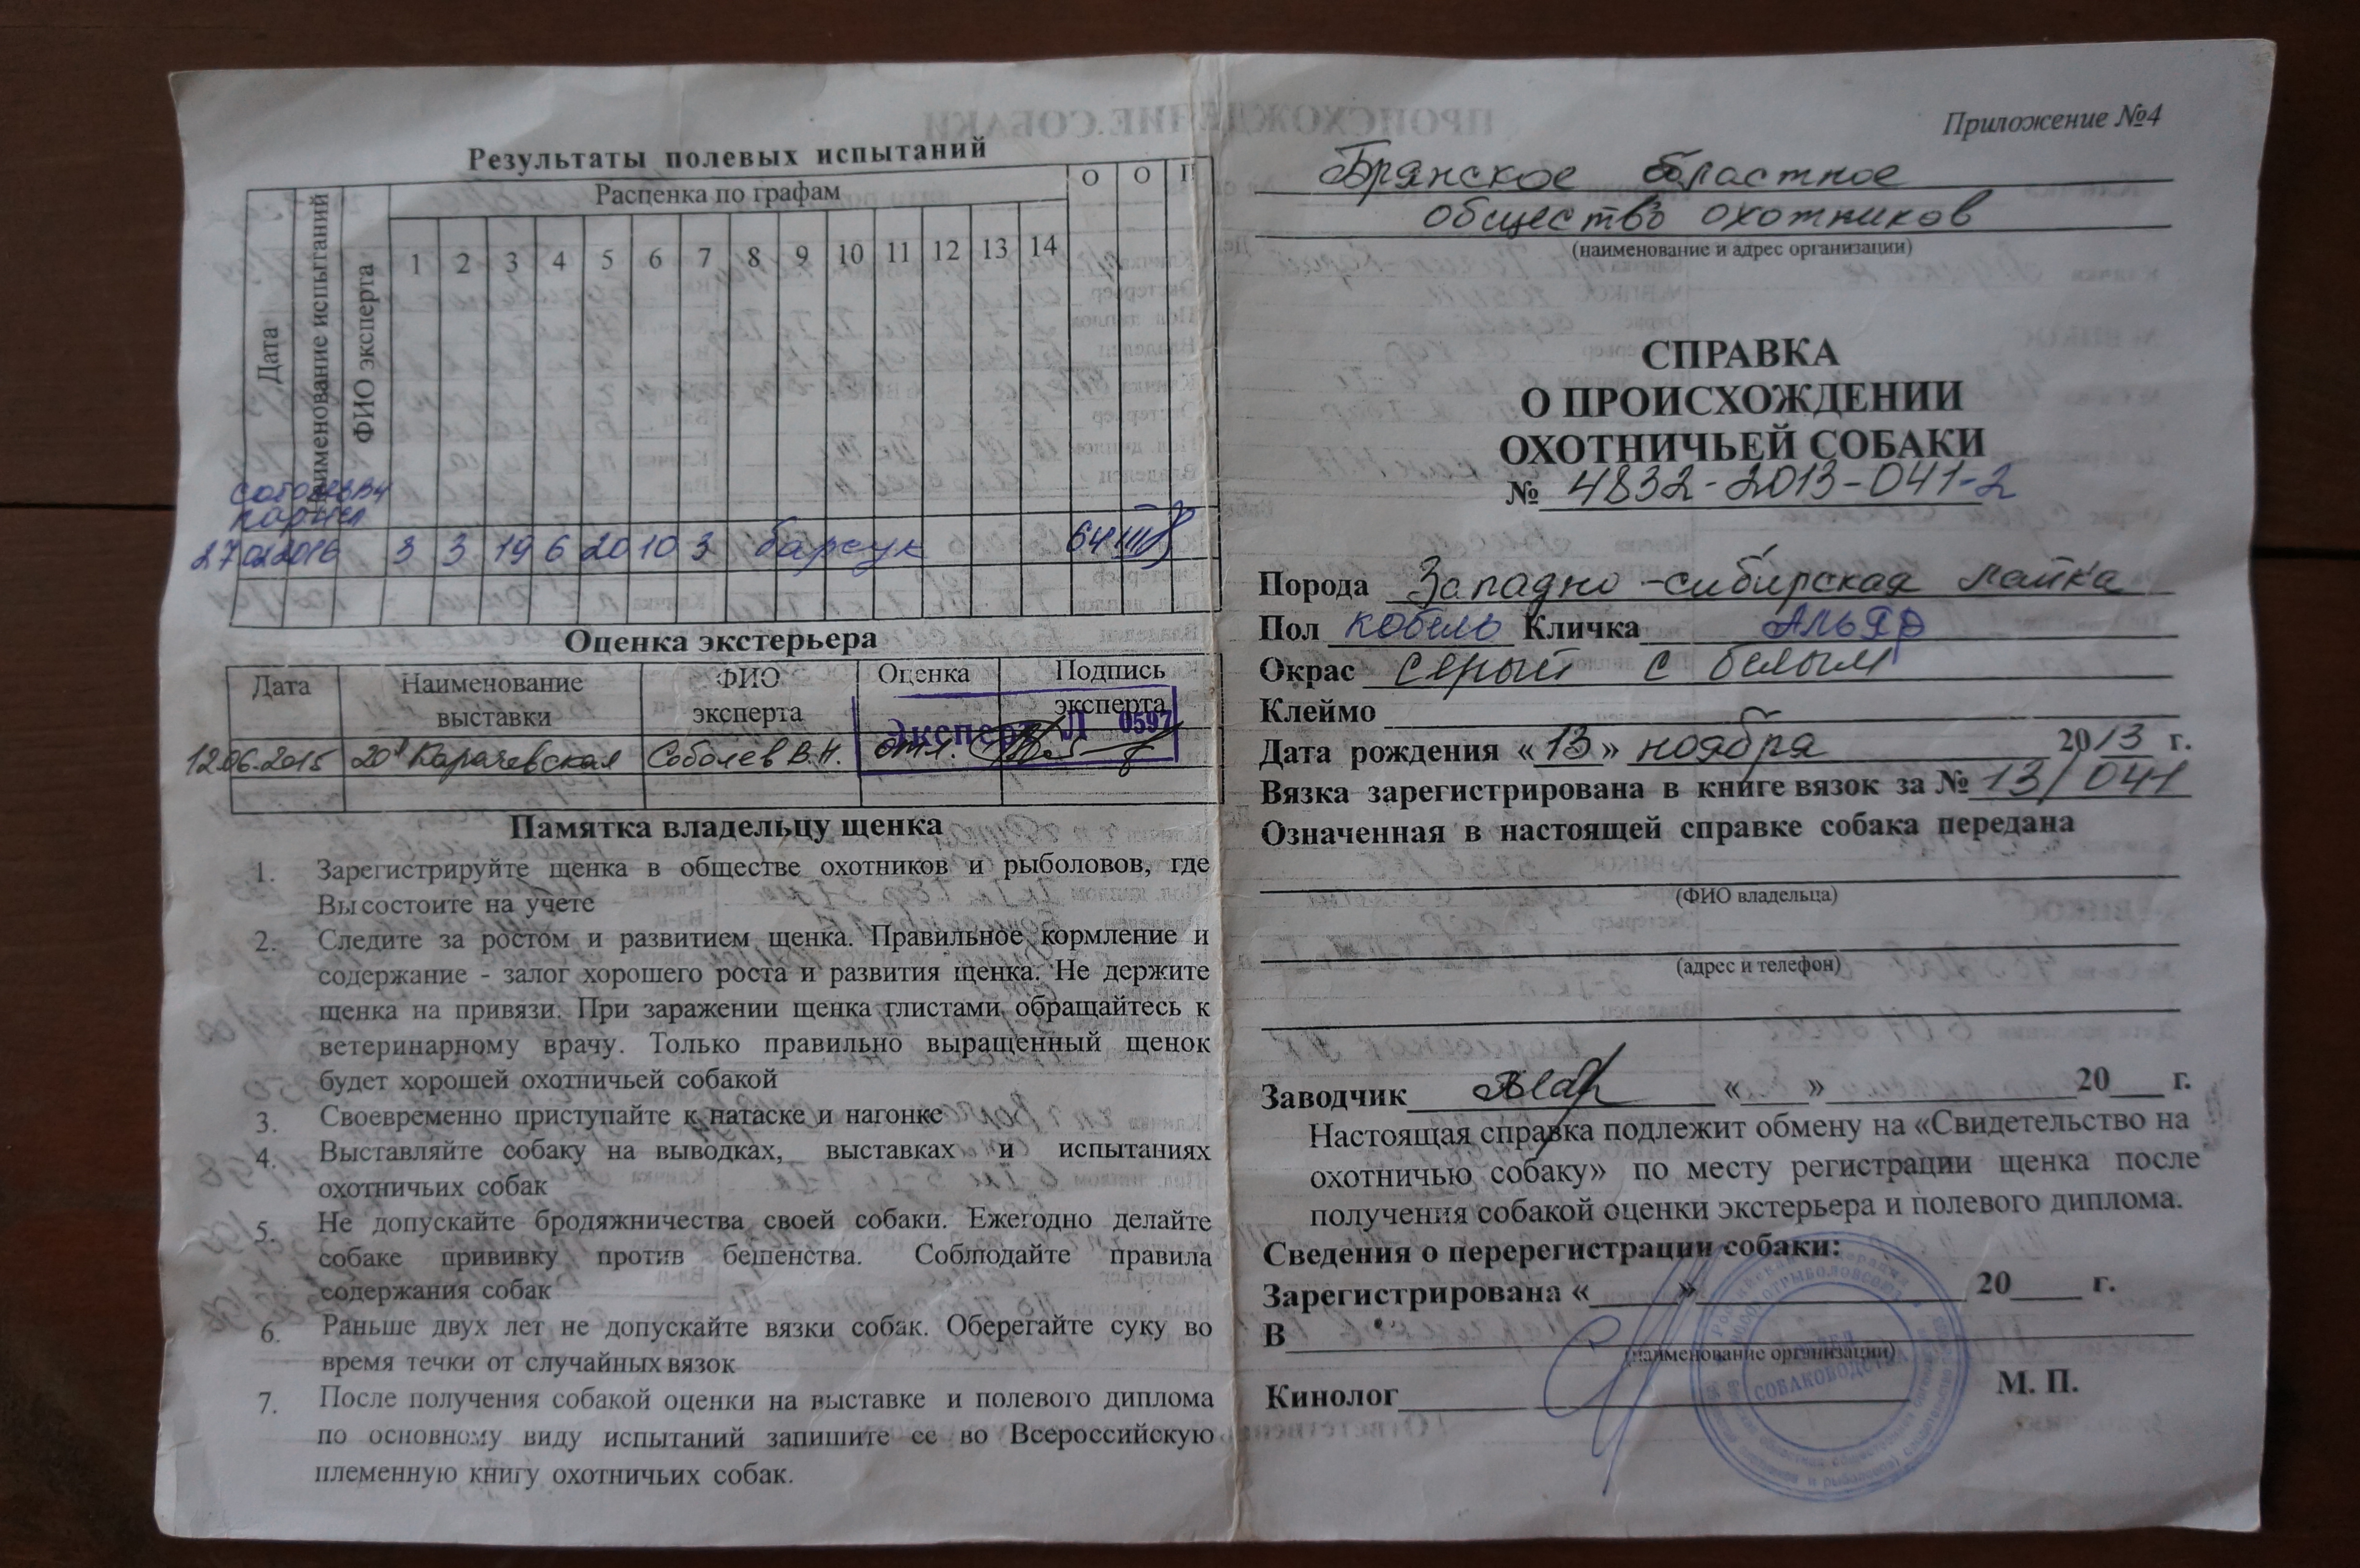 Результаты полевых испытаний
Дата
Наименование испытаний
ФИО эксперта
Расценка по графам
О О П
1 2 3 4 5 6 7 8 9 10 11 12 13 14
Соболев ВН
27 02 2016 3 3 19 6 20 10 3 барсук 64 III
Оценка экстерьера
Дата Наименование выставки ФИО эксперта Оценка Подпись эксперта
Эксперт Л 0597
12.06.2015 20я Карачевская Соболев В.Н. отл.
Памятка владельцу щенка
1. Зарегистрируйте щенка в обществе охотников и рыболовов, где
Вы состоите на учете
2. Следите за ростом и развитием щенка. Правильное кормление и
содержание - залог хорошего роста и развития щенка. Не держите
щенка на привязи. При заражении щенка глистами обращайтесь к
ветеринарному врачу. Только правильно выращенный щенок
будет хорошей охотничьей собакой
3. Своевременно приступайте к натаске и нагонке
4. Выставляйте собаку на выводках, выставках и испытаниях
охотничьих собак
5. Не допускайте бродяжничества своей собаки. Ежегодно делайте
собаке прививку против бешенства. Соблюдайте правила
содержания собак
6. Раньше двух лет не допускайте вязки собак. Оберегайте суку во
время течки от случайных вязок
7. После получения собакой оценки на выставке и полевого диплома
по основному виду испытаний запишите ее во Всероссийскую
племенную книгу охотничьих собак.
Приложение №4
Брянское областное
общество охотников
(наименование и адрес организации)
СПРАВКА
О ПРОИСХОЖДЕНИИ
ОХОТНИЧЬЕЙ СОБАКИ
№ 4832-2013-041-2
Порода Западно-сибирская лайка
Пол кобель Кличка Альяр
Окрас серый с белым
Клеймо
Дата рождения «13» ноября 2013 г.
Вязка зарегистрирована в книге вязок за № 13/041
Означенная в настоящей справке собака передана
(ФИО владельца)
(адрес и телефон)
Заводчик «___»___ 20___ г.
Настоящая справка подлежит обмену на «Свидетельство на
охотничью собаку» по месту регистрации щенка после
получения собакой оценки экстерьера и полевого диплома.
Сведения о перерегистрации собаки:
Зарегистрирована «___»___ 20___ г.
В
(наименование организации)
Кинолог
М. П.
ОТДЕЛ
СОБАКОВОДСТВА